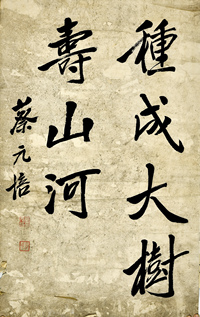 種成大樹
壽山河
蔡元培